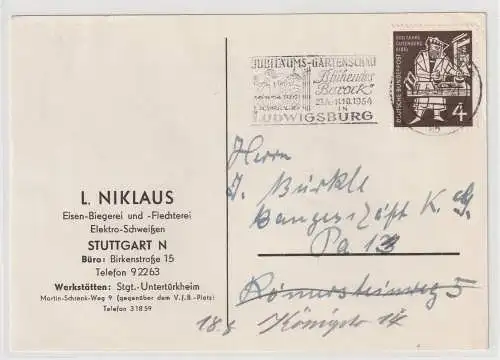 JUBILÄUMS-GARTENSCHAU
"Blühendes
Barock"
23.4.-11.10.1954
IN
LUDWIGSBURG
500 JAHRE
GUTENBERG
BIBEL
DEUTSCHE BUNDESPOST
4
L. NIKLAUS
Eisen-Biegerei und -Flechterei
Elektro-Schweißen
STUTTGART N
Büro: Birkenstraße 15
Telefon 92263
Werkstätten: Stgt.-Untertürkheim
Martin-Schrenk-Weg 9 (gegenüber dem V.f.B.-Platz)
Telefon 31859
Herrn
J. Bürkle
Baugeschäft K.G.
Römersteinweg 5
Königstr 14